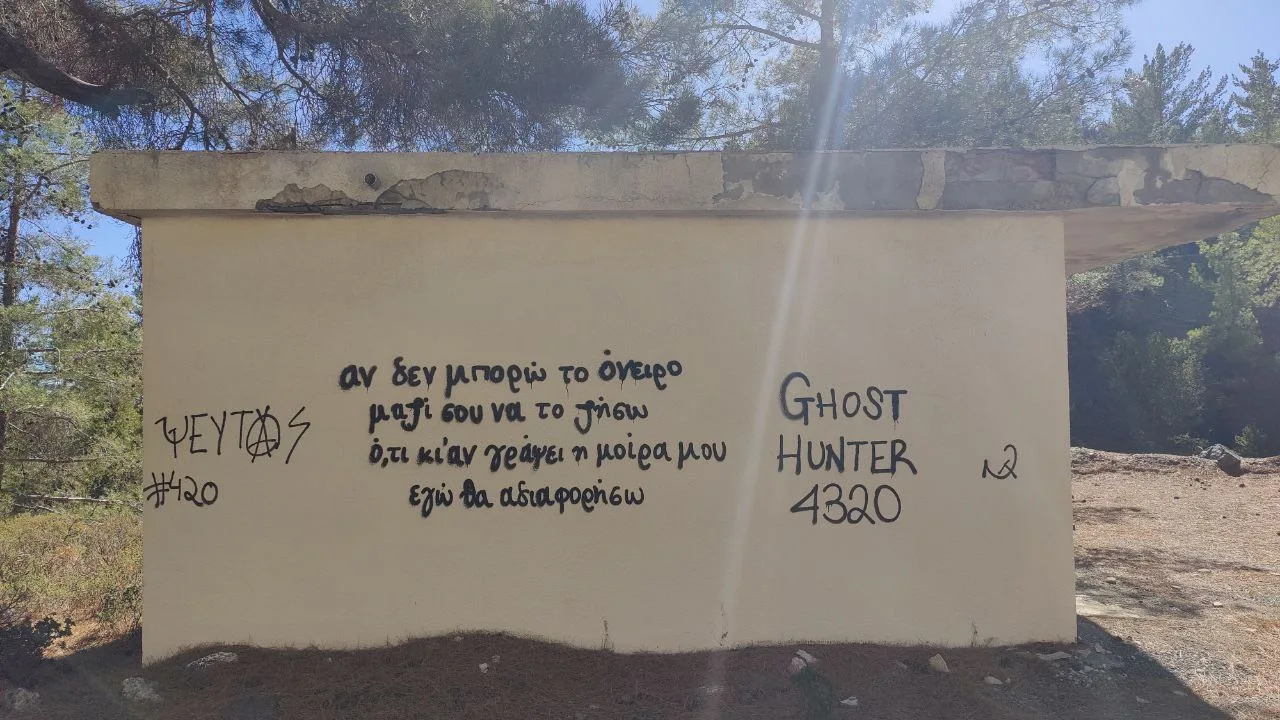 ΨΕΥΤΑS
#420
αν δεν μπορώ το όνειρο
μαζί σου να το ζήσω
ό,τι κι'αν γράψει η μοίρα μου
εγώ θα αδιαφορήσω
GHOST
HUNTER
4320